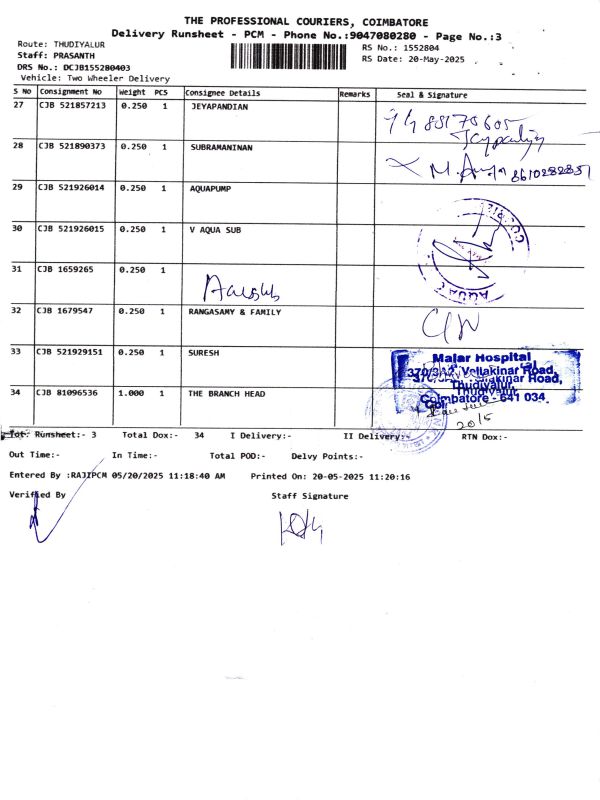 THE PROFESSIONAL COURIERS, COIMBATORE
Delivery Runsheet - PCM - Phone No.:9047080280 - Page No.:3
Route: THUDIYALUR
RS No.: 1552804
Staff: PRASANTH
RS Date: 20-May-2025
DRS No.: DCJB155280403
Vehicle: Two Wheeler Delivery
S No Consignment No Weight PCS Consignee Details Remarks Seal & Signature
27 CJB 521857213 0.250 1 JEYAPANDIAN
28 CJB 521890373 0.250 1 SUBRAMANINAN
8610282837
29 CJB 521926014 0.250 1 AQUAPUMP
30 CJB 521926015 0.250 1 V AQUA SUB
31 CJB 1659265 0.250 1
32 CJB 1679547 0.250 1 RANGASAMY & FAMILY
33 CJB 521929151 0.250 1 SURESH
Malar Hospital
370/3A2, Vellakinar Road,
Thudiyalur,
Coimbatore - 641 034.
34 CJB 81096536 1.000 1 THE BRANCH HEAD
20/5
Tot. Runsheet:- 3 Total Dox:- 34 I Delivery:- II Delivery:- RTN Dox:-
Out Time:- In Time:- Total POD:- Delvy Points:-
Entered By :RAJIPCM 05/20/2025 11:18:40 AM Printed On: 20-05-2025 11:20:16
Verified By Staff Signature